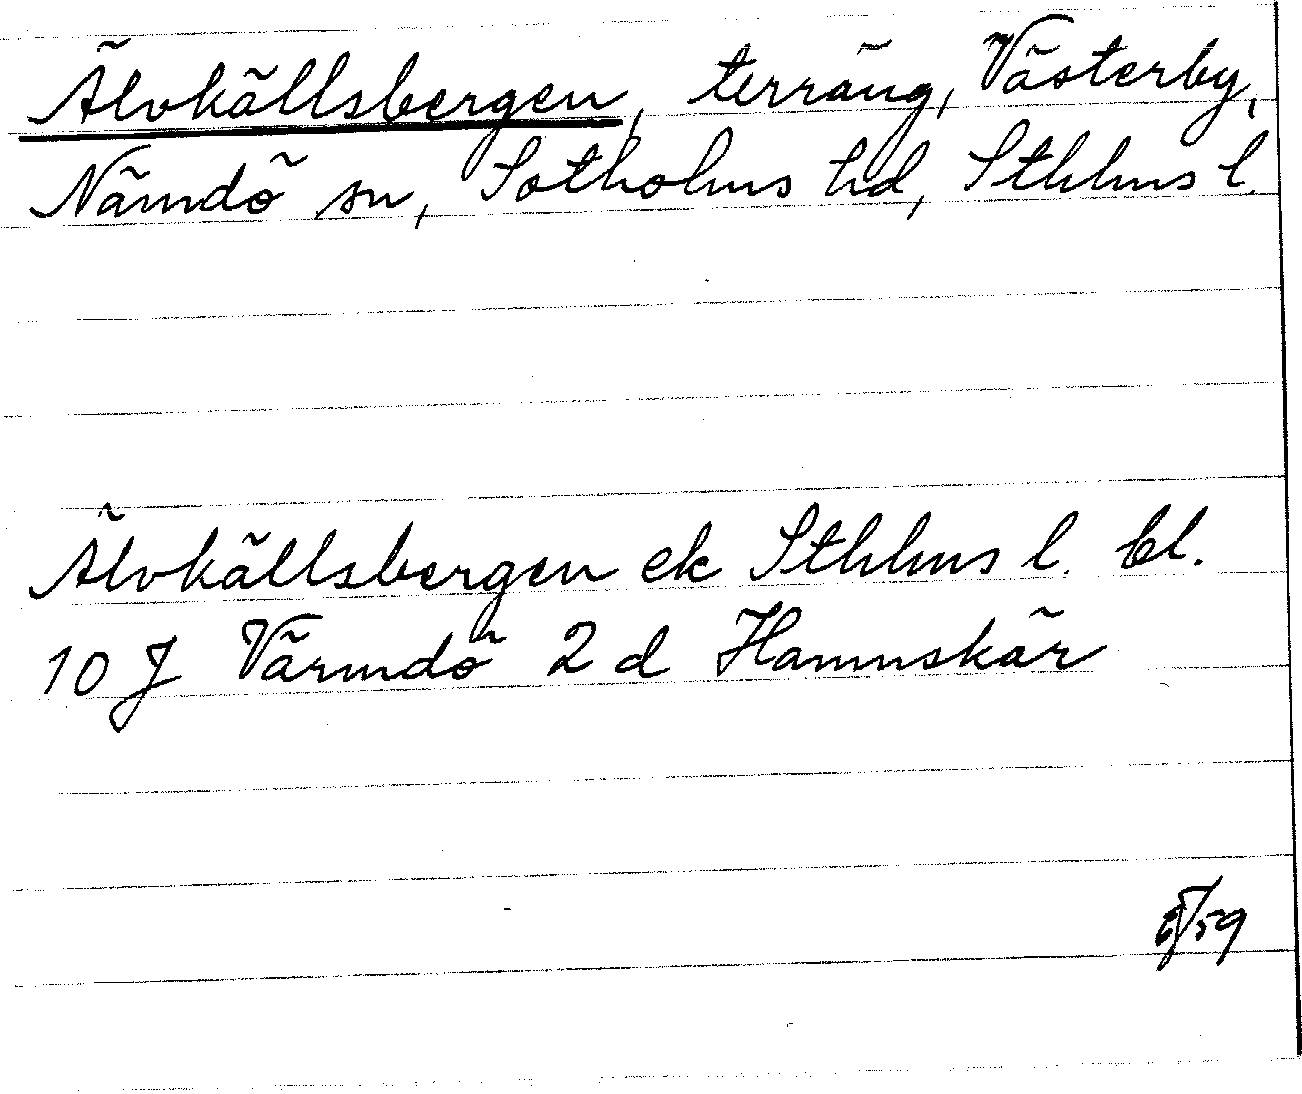 Älvkällsbergen, terräng, Västerby,
Nämdö sn, Sotholms hd, Sthlms l.
Älvkällsbergen ek Sthlms l. bl.
10 J Värmdö 2 d Hammskär